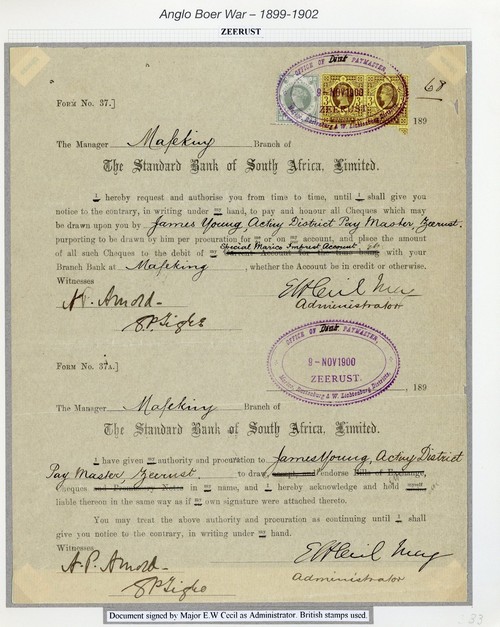 Anglo Boer War – 1899-1902
ZEERUST
OFFICE OF Dist PAYMASTER,
9 - NOV 1900
ZEERUST.
Marico, Rustenburg & W. Lichtenburg Districts.
68
FORM NO. 37.]
189
The Manager Mafeking Branch of
The Standard Bank of South Africa, Limited.
I hereby request and authorise you from time to time, until I shall give
you notice to the contrary, in writing under my hand, to pay and honour all Cheques which may
be drawn upon you by James Young Actng District Pay Master, Zeerust.
purporting to be drawn by him per procuration for me or on my account, and place the amount
Special Marico Imprest Account
of all such Cheques to the debit of my Current Account for the time being with your
Branch Bank at Mafeking, whether the Account be in credit or otherwise.
Witnesses
EW Cecil Maj
Administrator
A.P. Arnold
OFFICE OF Dist PAYMASTER,
9 - NOV 1900
ZEERUST.
Marico, Rustenburg & W. Lichtenburg Districts.
FORM NO. 37A.]
189
The Manager Mafeking Branch of
The Standard Bank of South Africa, Limited.
I have given my authority and procuration to James Young, Actng District
Pay Master, Zeerust. to draw, accept, and endorse Bills of Exchange,
Cheques and Promissory Notes in my name, and I hereby acknowledge and hold myself
liable thereon in the same way as if my own signature were attached thereto.
You may treat the above authority and procuration as continuing until I shall
give you notice to the contrary, in writing under my hand.
Witnesses
EW Cecil Maj
Administrator
A.P. Arnold
Document signed by Major E.W Cecil as Administrator. British stamps used.
33